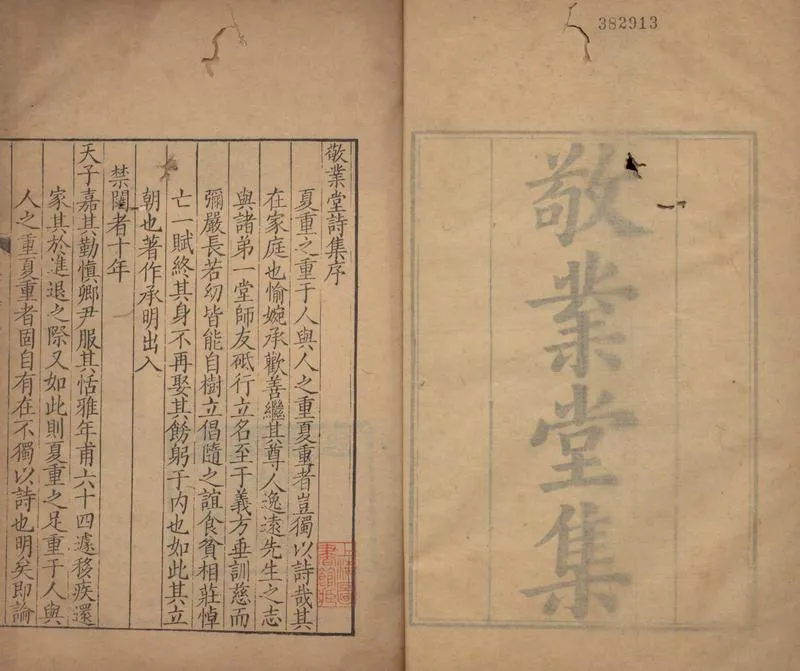 382913
敬業堂集
敬業堂詩集序
夏重之重于人與人之重夏重者豈獨以詩哉其
在家庭也愉婉承歡善繼其尊人逸遠先生之志
與諸弟一堂師友砥行立名至于義方垂訓慈而
彌嚴長若幼皆能自樹立倡隨之誼食貧相莊悼
亡一賦終其身不再娶其飭躬于内也如此其立
朝也著作承明出入
禁闥者十年
天子嘉其勤慎卿尹服其恬雅年甫六十四遽移疾還
家其於進退之際又如此則夏重之足重于人與
人之重夏重者固自有在不獨以詩也明矣即論
上海圖
書館藏